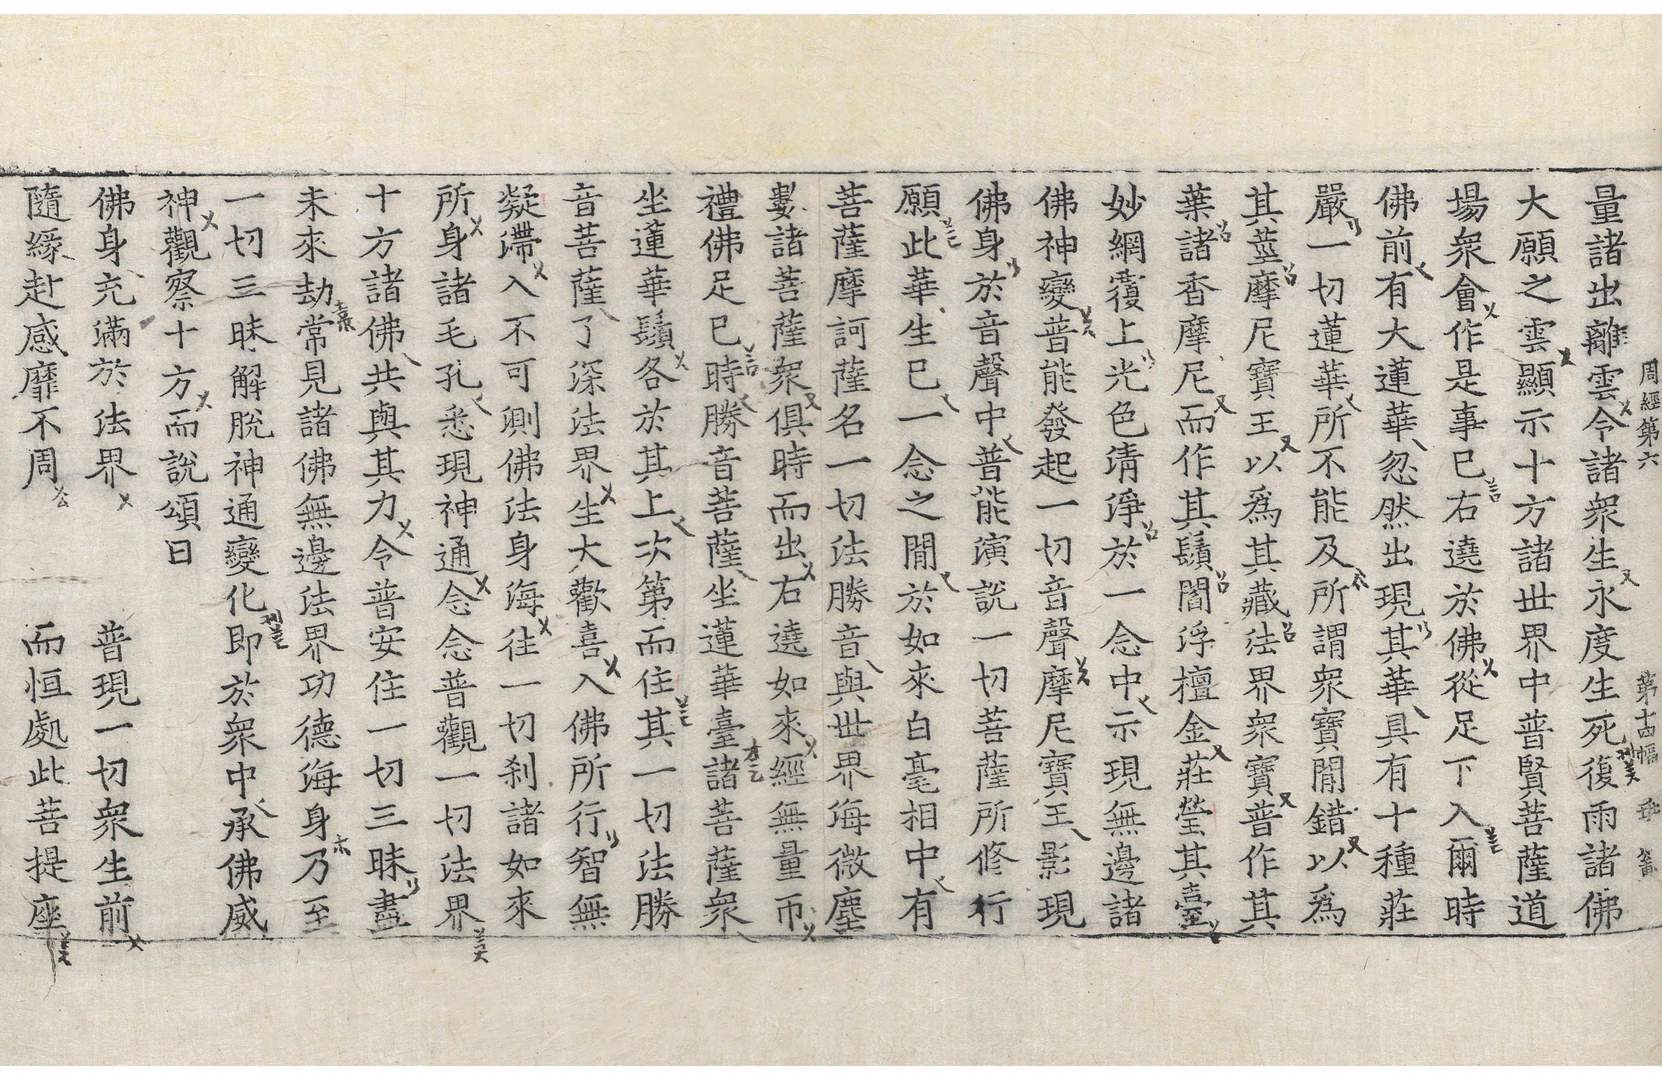 周經第六 第十四幅
量諸出離雲令諸衆生永度生死復雨諸佛
大願之雲顯示十方諸世界中普賢菩薩道
場衆會作是事已右遶於佛從足下入爾時
佛前有大蓮華忽然出現其華具有十種莊
嚴一切蓮華所不能及所謂衆寶閒錯以爲
其莖摩尼寶王以爲其藏法界衆寶普作其
葉諸香摩尼而作其鬚閻浮檀金莊瑩其臺
妙網覆上光色清淨於一念中示現無邊諸
佛神變普能發起一切音聲摩尼寶王影現
佛身於音聲中普能演說一切菩薩所修行
願此華生已一念之閒於如來白毫相中有
菩薩摩訶薩名一切法勝音與世界海微塵
數諸菩薩衆俱時而出右遶如來經無量帀
禮佛足已時勝音菩薩坐蓮華臺諸菩薩衆
坐蓮華鬚各於其上次第而住其一切法勝
音菩薩了深法界生大歡喜入佛所行智無
凝滯入不可測佛法身海往一切刹諸如來
所身諸毛孔悉現神通念念普觀一切法界
十方諸佛共與其力令普安住一切三昧盡
未來劫常見諸佛無邊法界功德海身乃至
一切三昧解脫神通變化即於衆中承佛威
神觀察十方而說頌曰
佛身充滿於法界 普現一切衆生前
隨緣赴感靡不周 而恒處此菩提座